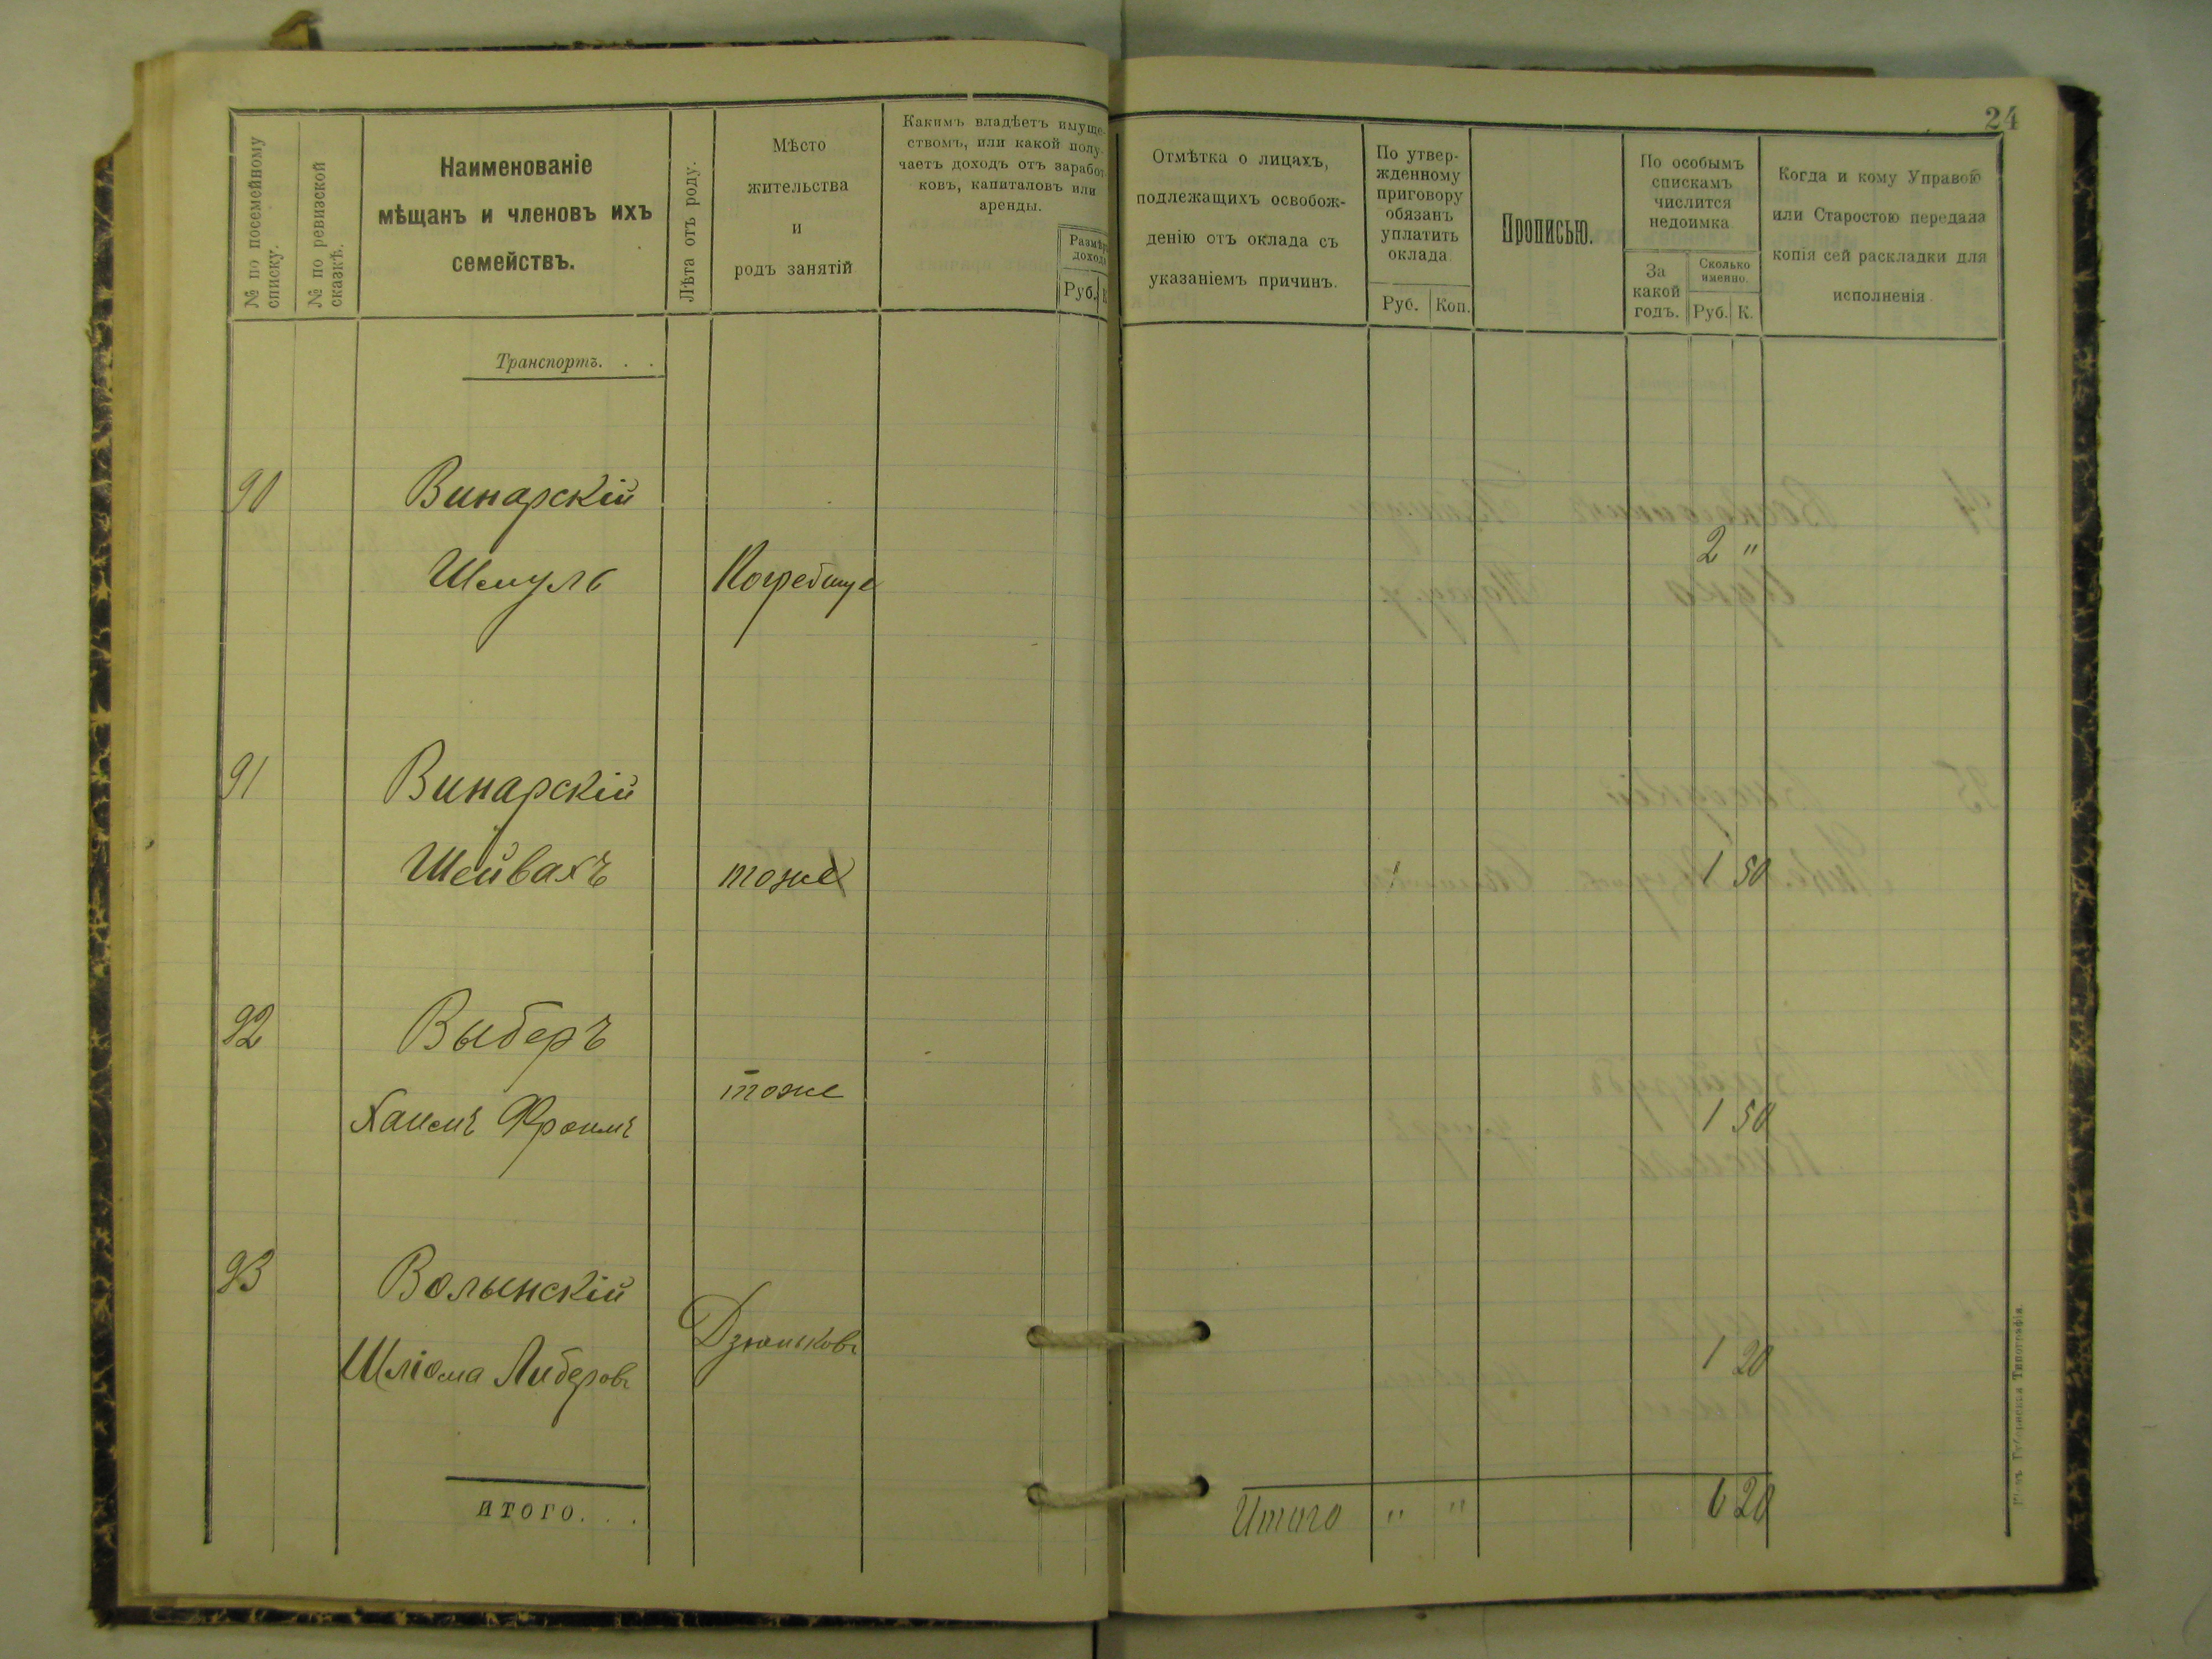 24
№ по посемейному
списку.
№ по ревизской
сказкѣ.
Наименованіе
мѣщанъ и членовъ ихъ
семействъ.
Лѣта отъ роду.
Мѣсто
жительства
и
родъ занятій
Какимъ владѣетъ имуще-
ствомъ, или какой полу-
чаетъ доходъ отъ заработ-
ковъ, капиталовъ или
аренды.
Размѣръ
дохода
Руб. К
Отмѣтка о лицахъ,
подлежащихъ освобож-
денію отъ оклада съ
указаніемъ причинъ.
По утвер-
жденному
приговору
обязанъ
уплатить
оклада
Руб. Коп.
Прописью.
По особымъ
спискамъ
числится
недоимка
За
какой
годъ.
Сколько
именно.
Руб. К.
Когда и кому Управою
или Старостою передана
копія сей раскладки для
исполненія.
Транспортъ. . .
90 Винарскій
Шмуль Погребище 2 "
91 Винарскій
Шейвахъ тоже 1 50
92 Выберъ
Хаимъ Фроимъ тоже 1 50
93 Волынскій
Шліома Либеровъ Дзюньковъ 1 20
ИТОГО. . .
Итого " " 6 20
Кіевъ Губернская Типографія.